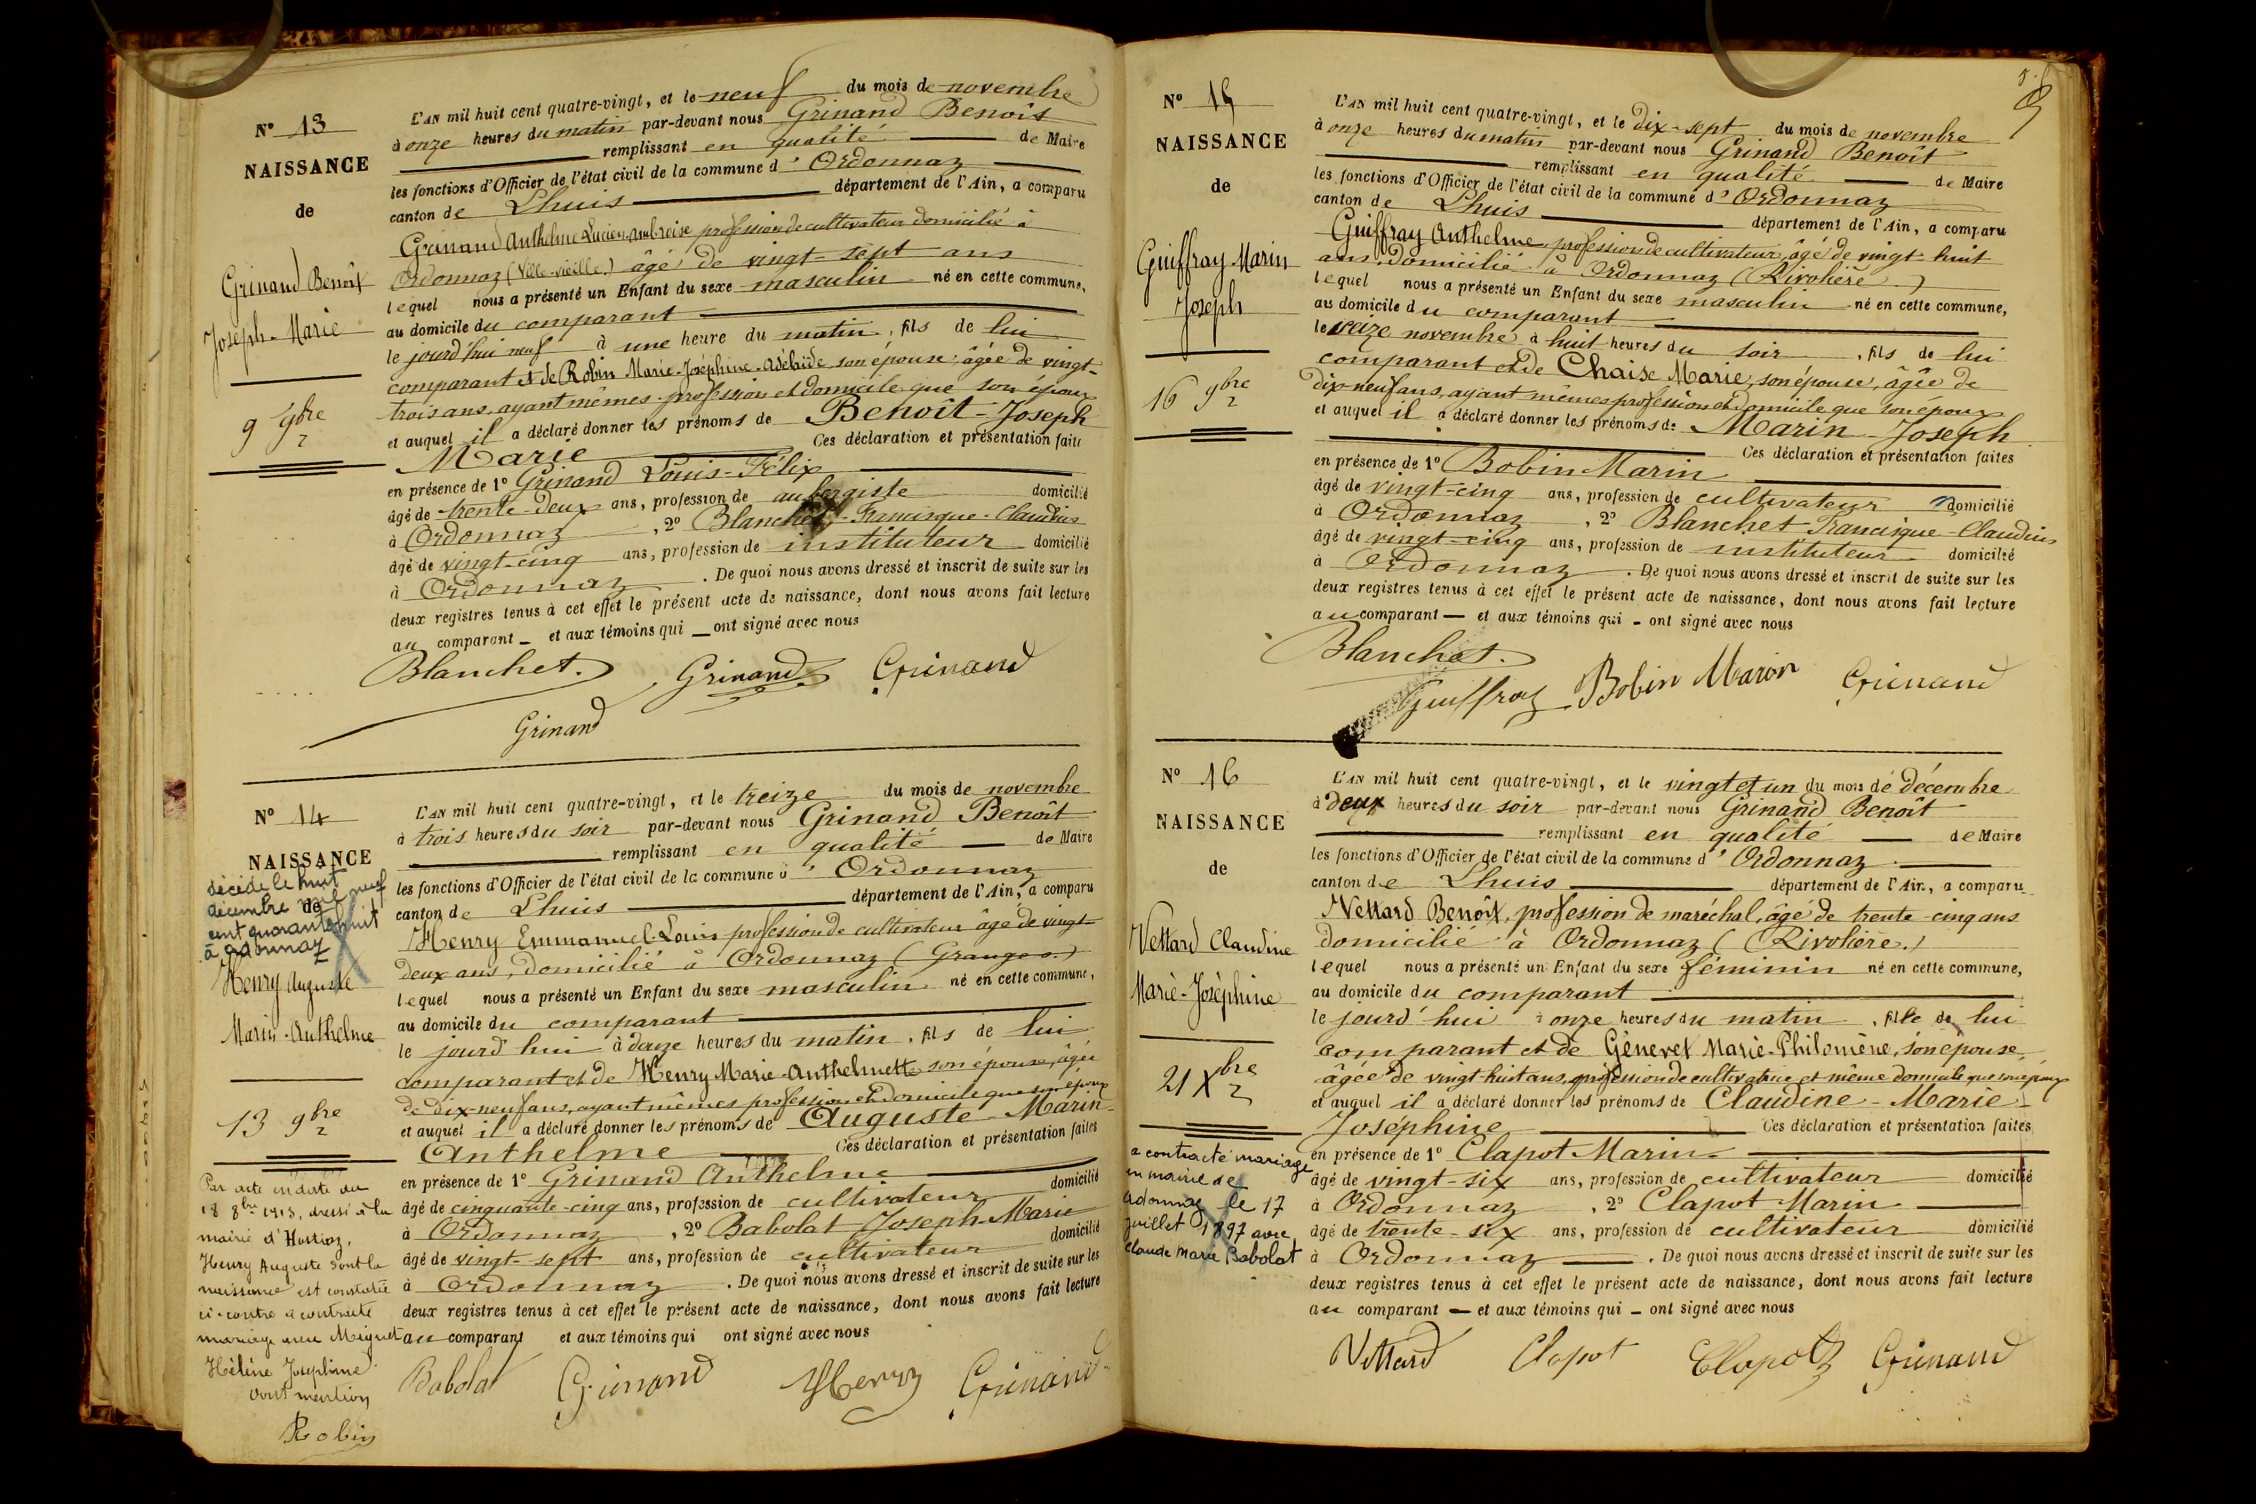 N° 13
NAISSANCE
de
Grinand Benoît
Joseph-Marie
9 9bre
L'AN mil huit cent quatre-vingt, et le neuf du mois de novembre
à onze heures du matin par-devant nous Grinand Benoît
remplissant en qualité de Maire
les fonctions d'Officier de l'état civil de la commune d'Ordonnaz
canton de Lhuis département de l'Ain, a comparu
Grinand Anthelme Lucien Ambroise profession de cultivateur domicilié à
Ordonnaz (Ville-vieille) âgé de vingt-sept ans
lequel nous a présenté un Enfant du sexe masculin né en cette commune,
au domicile du comparant
le jourd'hui neuf à une heure du matin, fils de lui
comparant et de Robin Marie-Joséphine-Adélaïde son épouse âgée de vingt-
trois ans, ayant mêmes profession et domicile que son époux
et auquel il a déclaré donner les prénoms de Benoît-Joseph
Marie Ces déclaration et présentation faites
en présence de 1° Grinand Louis-Félix
âgé de trente-deux ans, profession de aubergiste domicilié
à Ordonnaz, 2° Blanchet-Francisque-Claudius
âgé de vingt-cinq ans, profession de instituteur domicilié
à Ordonnaz. De quoi nous avons dressé et inscrit de suite sur les
deux registres tenus à cet effet le présent acte de naissance, dont nous avons fait lecture
au comparant et aux témoins qui ont signé avec nous
Blanchet. Grinand Grinand
Grinand
N° 14
NAISSANCE
de
décédé le huit
décembre mil neuf
cent quarante huit
à Ordonnaz
Henry Auguste
Marin-Anthelme
13 9bre
Par acte en date du
18 8bre 1913, dressé à la
mairie d'Hostiaz,
Henry Auguste dont la
naissance est constatée
ci-contre a contracté
mariage avec Miguet
Hélène Joséphine
dont mention
Robin
L'AN mil huit cent quatre-vingt, et le treize du mois de novembre
à trois heures du soir par-devant nous Grinand Benoît
remplissant en qualité de Maire
les fonctions d'Officier de l'état civil de la commune d'Ordonnaz
canton de Lhuis département de l'Ain, a comparu
Henry Emmanuel-Louis profession de cultivateur âgé de vingt-
deux ans, domicilié à Ordonnaz (Granges.)
lequel nous a présenté un Enfant du sexe masculin né en cette commune,
au domicile du comparant
le jourd'hui à onze heures du matin, fils de lui
comparant et de Henry Marie-Anthelmette son épouse, âgée
de dix-neuf ans, ayant mêmes profession et domicile que son époux
et auquel il a déclaré donner les prénoms de Auguste-Marin-
Anthelme Ces déclaration et présentation faites
en présence de 1° Grinand Anthelme
âgé de cinquante-cinq ans, profession de cultivateur domicilié
à Ordonnaz, 2° Babolat Joseph Marie
âgé de vingt-sept ans, profession de cultivateur domicilié
à Ordonnaz. De quoi nous avons dressé et inscrit de suite sur les
deux registres tenus à cet effet le présent acte de naissance, dont nous avons fait lecture
au comparant et aux témoins qui ont signé avec nous
Babolat Grinand Henry Grinand
N° 15
NAISSANCE
de
Guiffray Marin
Joseph
16 9bre
L'AN mil huit cent quatre-vingt, et le dix-sept du mois de novembre
à onze heures du matin par-devant nous Grinand Benoît
remplissant en qualité de Maire
les fonctions d'Officier de l'état civil de la commune d'Ordonnaz
canton de Lhuis département de l'Ain, a comparu
Guiffray Anthelme, profession de cultivateur, âgé de vingt-huit
ans, domicilié à Ordonnaz (Rivolière.)
lequel nous a présenté un Enfant du sexe masculin né en cette commune,
au domicile du comparant
le seize novembre à huit heures du soir, fils de lui
comparant et de Chaise Marie, son épouse, âgée de
dix-neuf ans, ayant mêmes profession et domicile que son époux
et auquel il a déclaré donner les prénoms de Marin-Joseph
Ces déclaration et présentation faites
en présence de 1° Bobin Marin
âgé de vingt-cinq ans, profession de cultivateur domicilié
à Ordonnaz, 2° Blanchet Francisque-Claudius
âgé de vingt-cinq ans, profession de instituteur domicilié
à Ordonnaz. De quoi nous avons dressé et inscrit de suite sur les
deux registres tenus à cet effet le présent acte de naissance, dont nous avons fait lecture
au comparant et aux témoins qui ont signé avec nous
Blanchet.
Guiffray Bobin Marin Grinand
N° 16
NAISSANCE
de
Vettard Claudine
Marie-Joséphine
21 Xbre
a contracté mariage
en mairie de
Ordonnaz le 17
juillet 1897 avec
Claude Marie Babolat
L'AN mil huit cent quatre-vingt, et le vingt et un du mois de décembre
à deux heures du soir par-devant nous Grinand Benoît
remplissant en qualité de Maire
les fonctions d'Officier de l'état civil de la commune d'Ordonnaz
canton de Lhuis département de l'Ain, a comparu
Vettard Benoît, profession de maréchal, âgé de trente-cinq ans
domicilié à Ordonnaz (Rivolière.)
lequel nous a présenté un Enfant du sexe féminin né en cette commune,
au domicile du comparant
le jourd'hui à onze heures du matin, fille de lui
comparant et de Génevet Marie-Philomène, son épouse,
âgée de vingt-huit ans, profession de cultivatrice et même domicile que son époux
et auquel il a déclaré donner les prénoms de Claudine-Marie-
Joséphine Ces déclaration et présentation faites
en présence de 1° Clapot Marin
âgé de vingt-six ans, profession de cultivateur domicilié
à Ordonnaz, 2° Clapot Marin
âgé de trente-six ans, profession de cultivateur domicilié
à Ordonnaz. De quoi nous avons dressé et inscrit de suite sur les
deux registres tenus à cet effet le présent acte de naissance, dont nous avons fait lecture
au comparant et aux témoins qui ont signé avec nous
Vettard Clapot Clapot Grinand